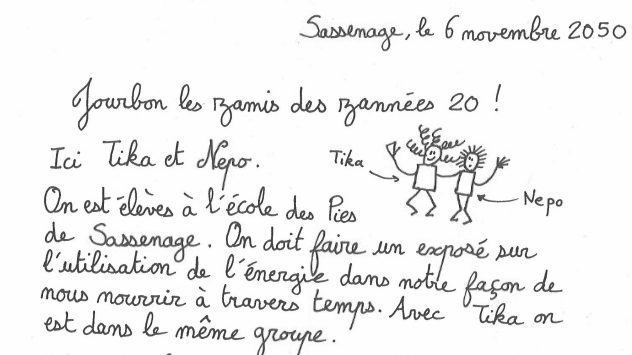 Sassenage, le 6 novembre 2050
Jourbon les zamis des zannées 20 !
Ici Tika et Nepo.
Tika
Nepo
On est élèves à l'école des Pies
de Sassenage. On doit faire un exposé sur
l'utilisation de l'énergie dans notre façon de
nous nourrir à travers temps. Avec Tika on
est dans le même groupe.